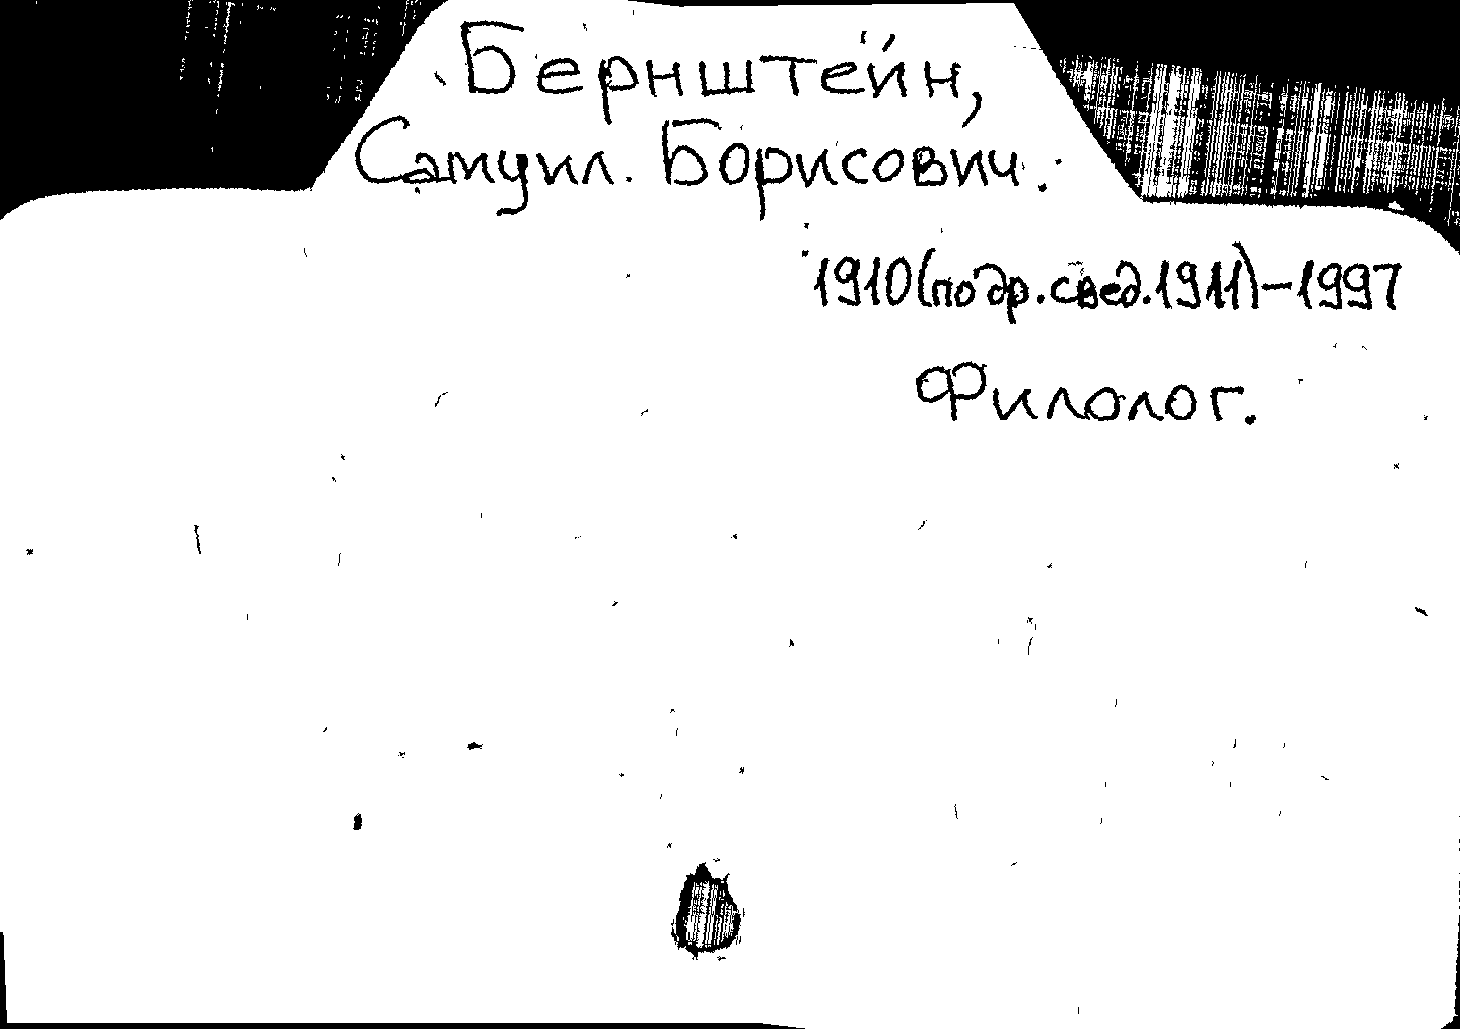 Бернштейн,
Самуил Борисович.
1910(по др.свед.1911)-1997
Филолог.